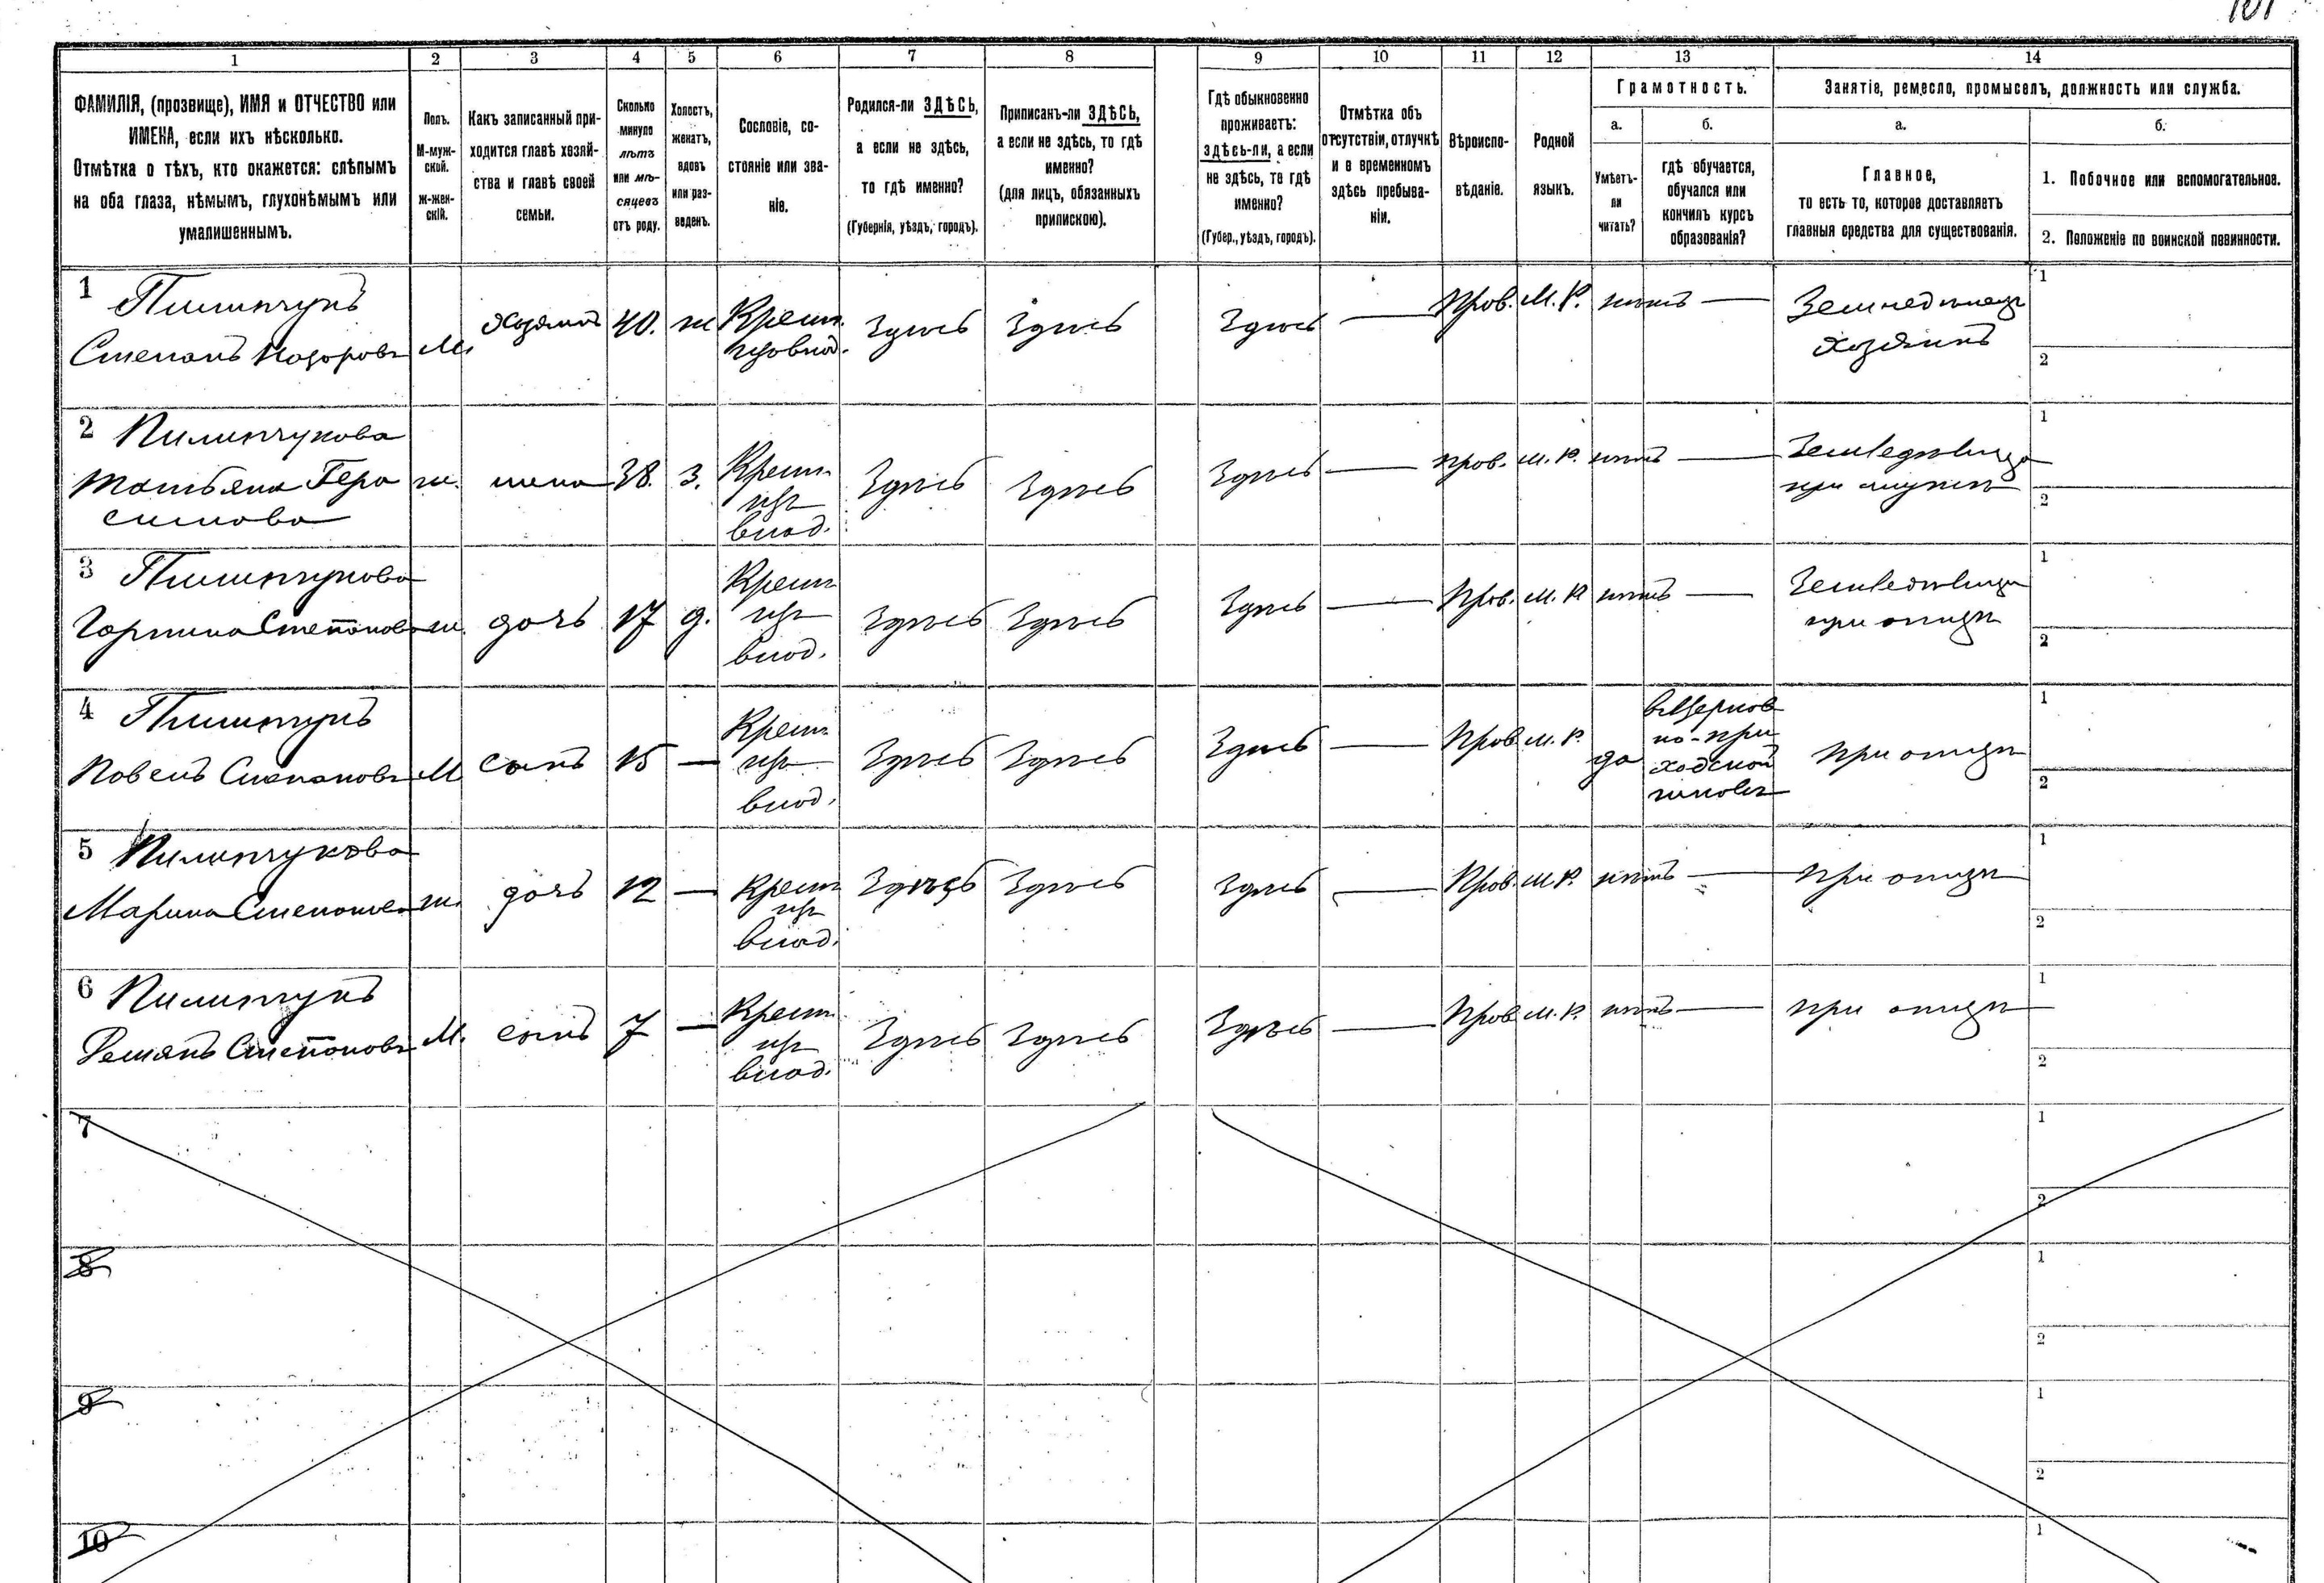 101
1 2 3 4 5 6 7 8 9 10 11 12 13 14
ФАМИЛІЯ, (прозвище), ИМЯ и ОТЧЕСТВО или
ИМЕНА, если ихъ нѣсколько.
Отмѣтка о тѣхъ, кто окажется: слѣпымъ
на оба глаза, нѣмымъ, глухонѣмымъ или
умалишеннымъ.
Полъ.
М-муж-
ской.
Ж-жен-
скій.
Какъ записанный при-
ходится главѣ хозяй-
ства и главѣ своей
семьи.
Сколько
минуло
лѣтъ
или мѣ-
сяцевъ
отъ роду.
Холостъ,
женатъ,
вдовъ
или раз-
веденъ.
Сословіе, со-
стояніе или зва-
ніе.
Родился-ли ЗДѢСЬ,
а если не здѣсь,
то гдѣ именно?
(Губернія, уѣздъ, городъ).
Приписанъ-ли ЗДѢСЬ,
а если не здѣсь, то гдѣ
именно?
(для лицъ, обязанныхъ
припискою).
Гдѣ обыкновенно
проживаетъ:
здѣсь-ли, а если
не здѣсь, то гдѣ
именно?
(Губер., уѣздъ, городъ).
Отмѣтка объ
отсутствіи, отлучкѣ
и в временномъ
здѣсь пребыва-
ніи.
Вѣроиспо-
вѣданіе.
Родной
языкъ.
Грамотность.
а.
Умѣетъ-
ли
читать?
б.
гдѣ обучается,
обучался или
кончилъ курсъ
образованія?
Занятіе, ремесло, промыселъ, должность или служба.
а.
Главное,
то есть то, которое доставляетъ
главныя средства для существованія.
б.
1. Побочное или вспомогательное.
2. Положеніе по воинской повинности.
1 Пилипчукъ
Степанъ М. Хозяинъ 40. ж Крест. Здѣсь Здѣсь Здѣсь — Прав. М. Р. нѣтъ — Земледѣлецъ 1
хозяинъ 2
2 Пилипчукова
Татьяна Гера ж. жена 38. з. Крест. Здѣсь Здѣсь Здѣсь — прав. м. р. нѣтъ — 1
симова влад. при мужѣ 2
3 Пилипчукова
Степанова ж. дочь 17 д. Крест. Здѣсь Здѣсь Здѣсь — Прав. м. р нѣтъ — 1
влад. при отцѣ 2
4 Пилипчукъ
Павелъ Степановъ М сынъ 15 — Крест. Здѣсь Здѣсь Здѣсь — Прав. м. р. да вЦерков
но-при
ходской
школѣ
влад. при отцѣ 1
2
5 Пилипчукова
Марина Степанова ж. дочь 12 — Крест. Здѣсь Здѣсь Здѣсь — Прав. м. р. нѣтъ — при отцѣ 1
влад. 2
6 Пилипчукъ
Романъ Степановъ М. сынъ 7 — Крест. Здѣсь Здѣсь Здѣсь — Прав. м. р. нѣтъ — при отцѣ 1
влад. 2
7 1
2
8 1
2
9 1
2
10 1